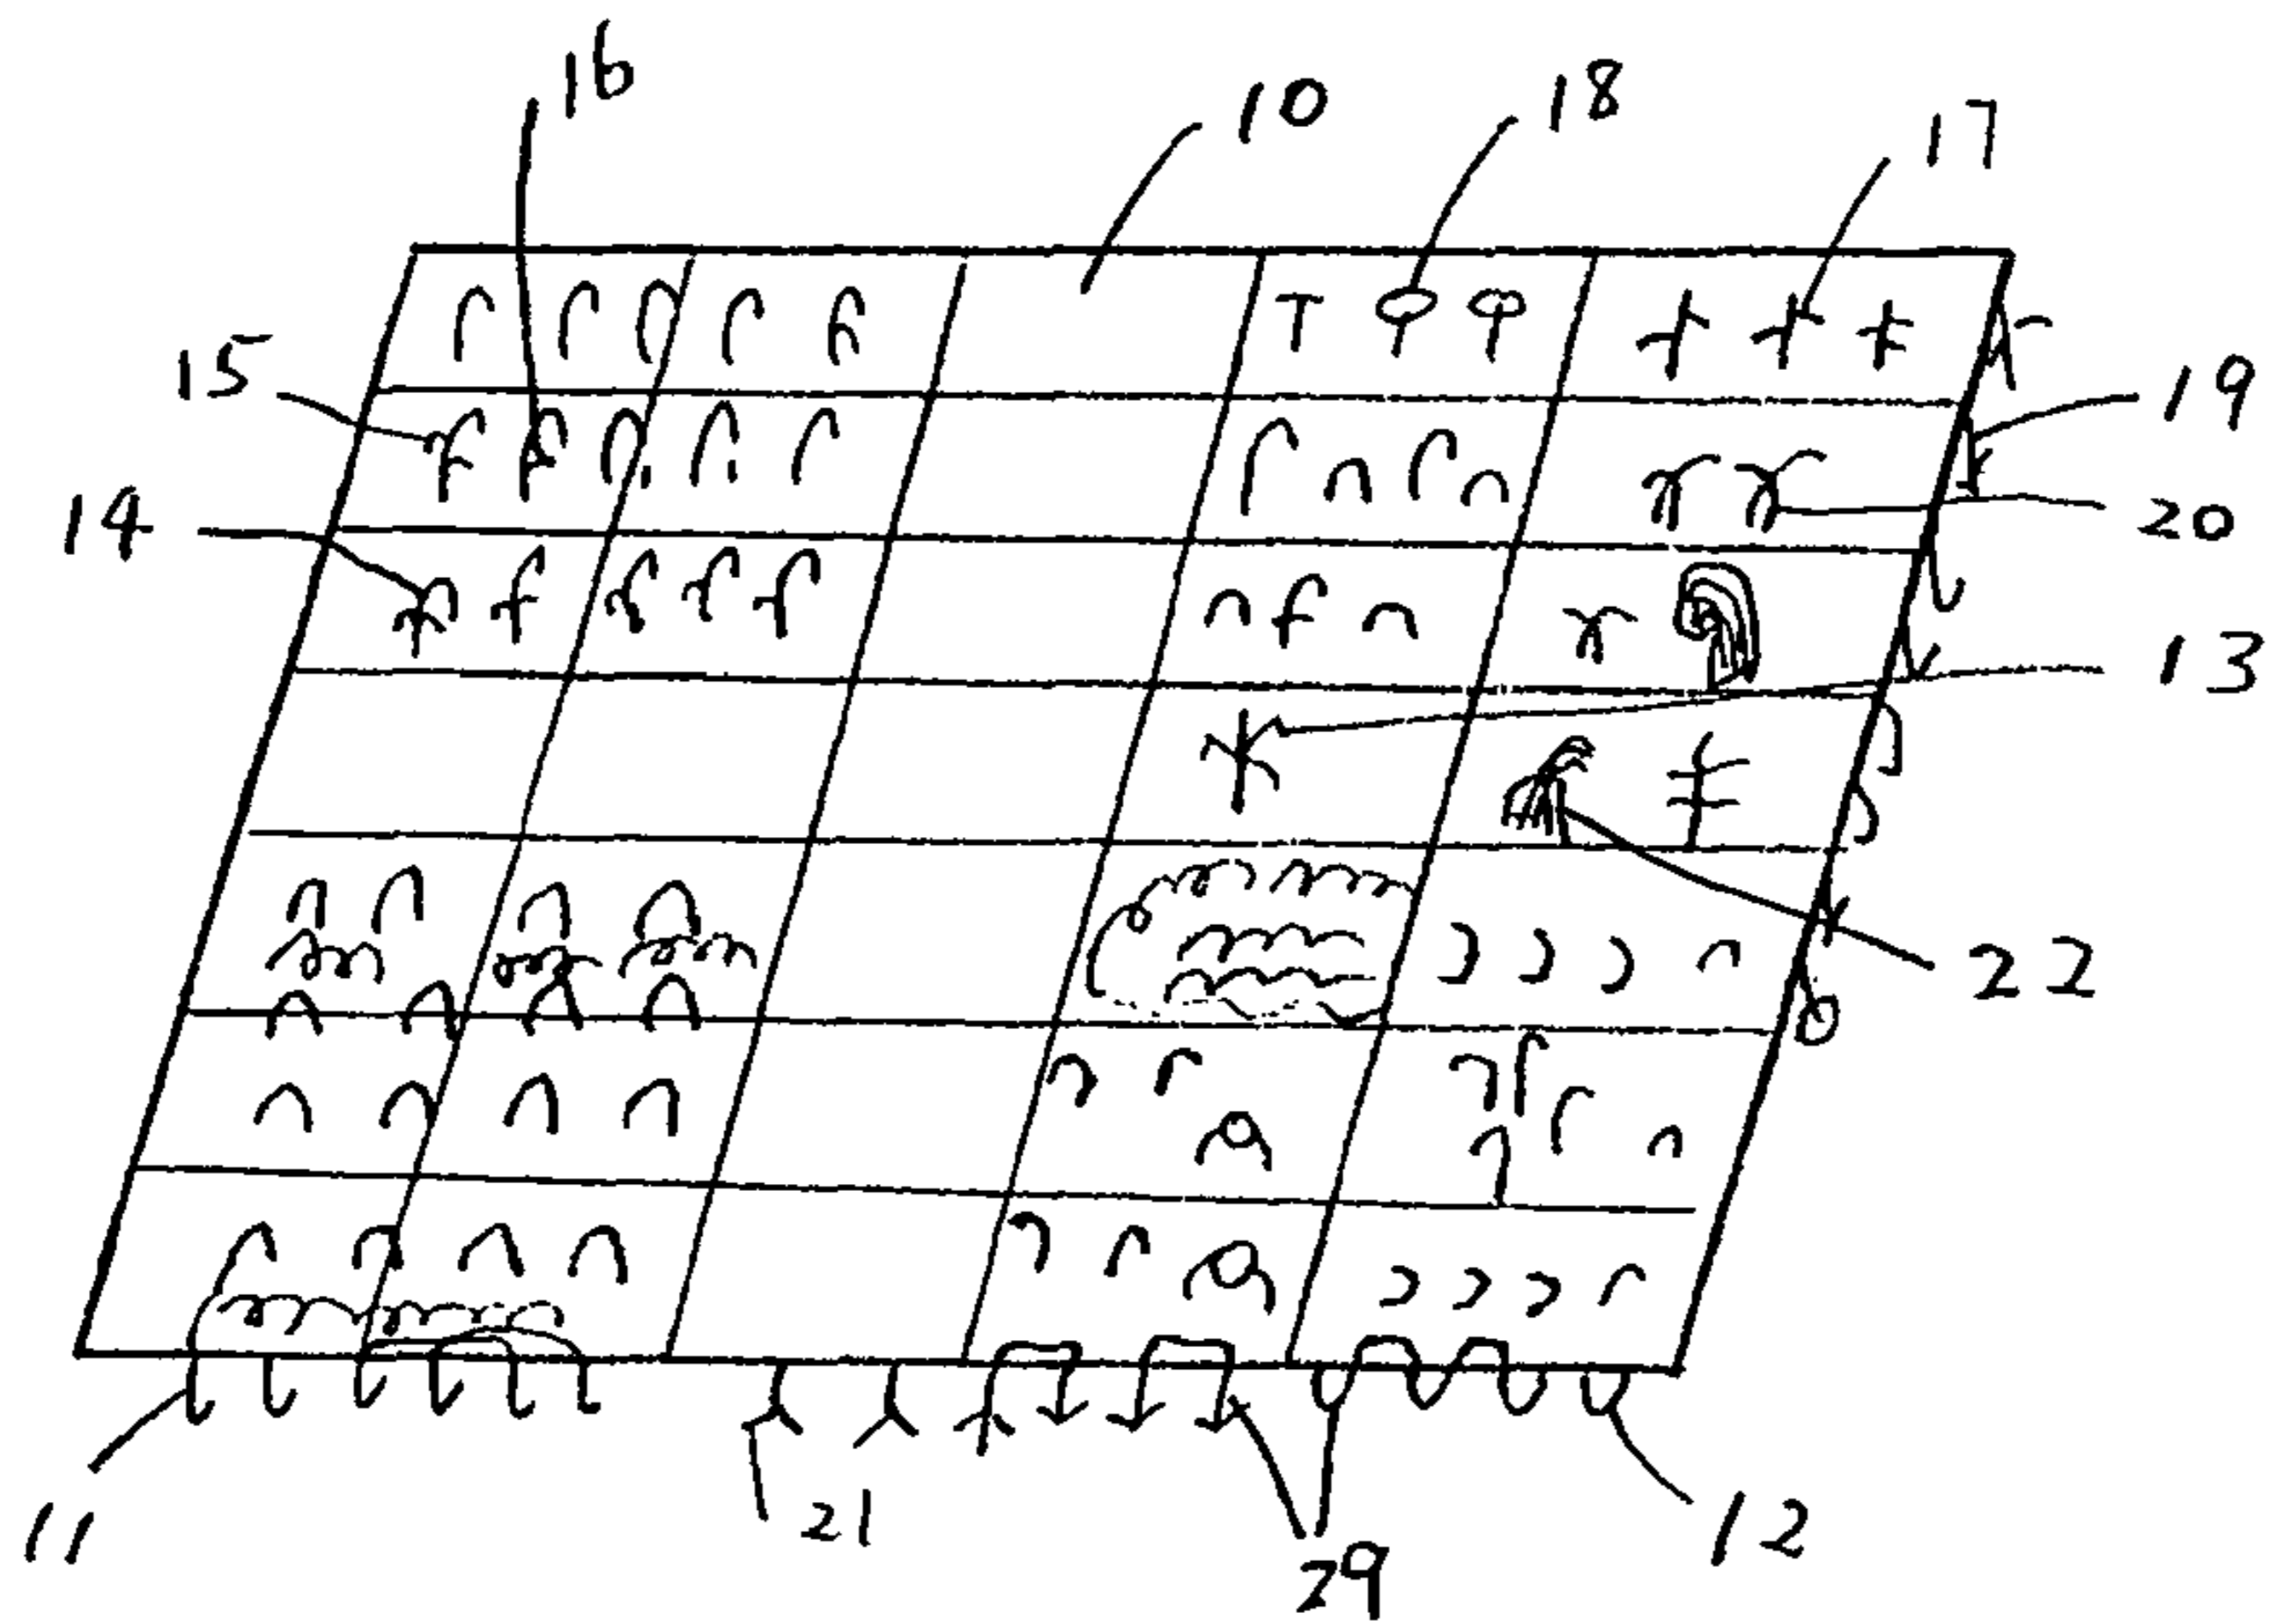 16
10
18
17
15
19
14
20
13
22
11
21
29
12